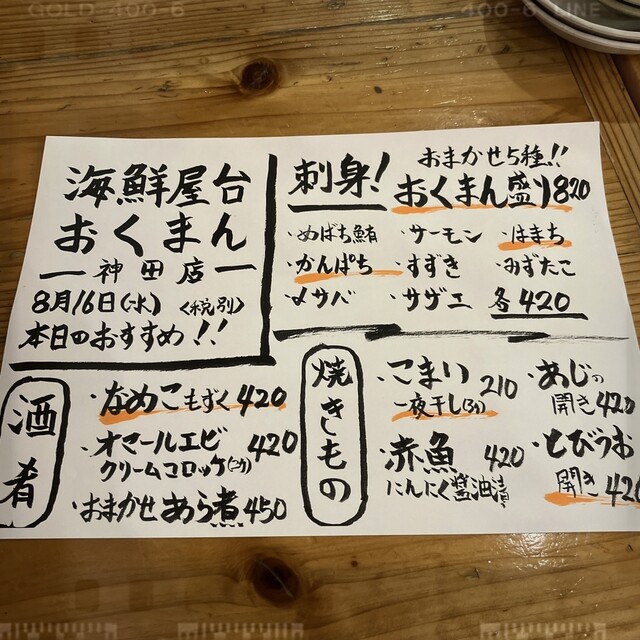 GOLD-400-6
400-6 LINE
海鮮屋台
おくまん
ー神田店ー
8月16日(水) <税別>
本日のおすすめ!!
刺身!
おまかせ5種!!
おくまん盛り820
・めばち鮪 ・サーモン ・はまち
・かんぱち ・すずき みずたこ
・〆サバ ・サザエ 各420
酒肴
・なめこもずく 420
・オマールエビ 420
クリームコロッケ(2ケ)
・おまかせあら煮450
焼きもの
・こまい 210
一夜干し(3ケ)
・赤魚 420
にんにく醤油漬
・あじの
開き420
・とびうお
開き420